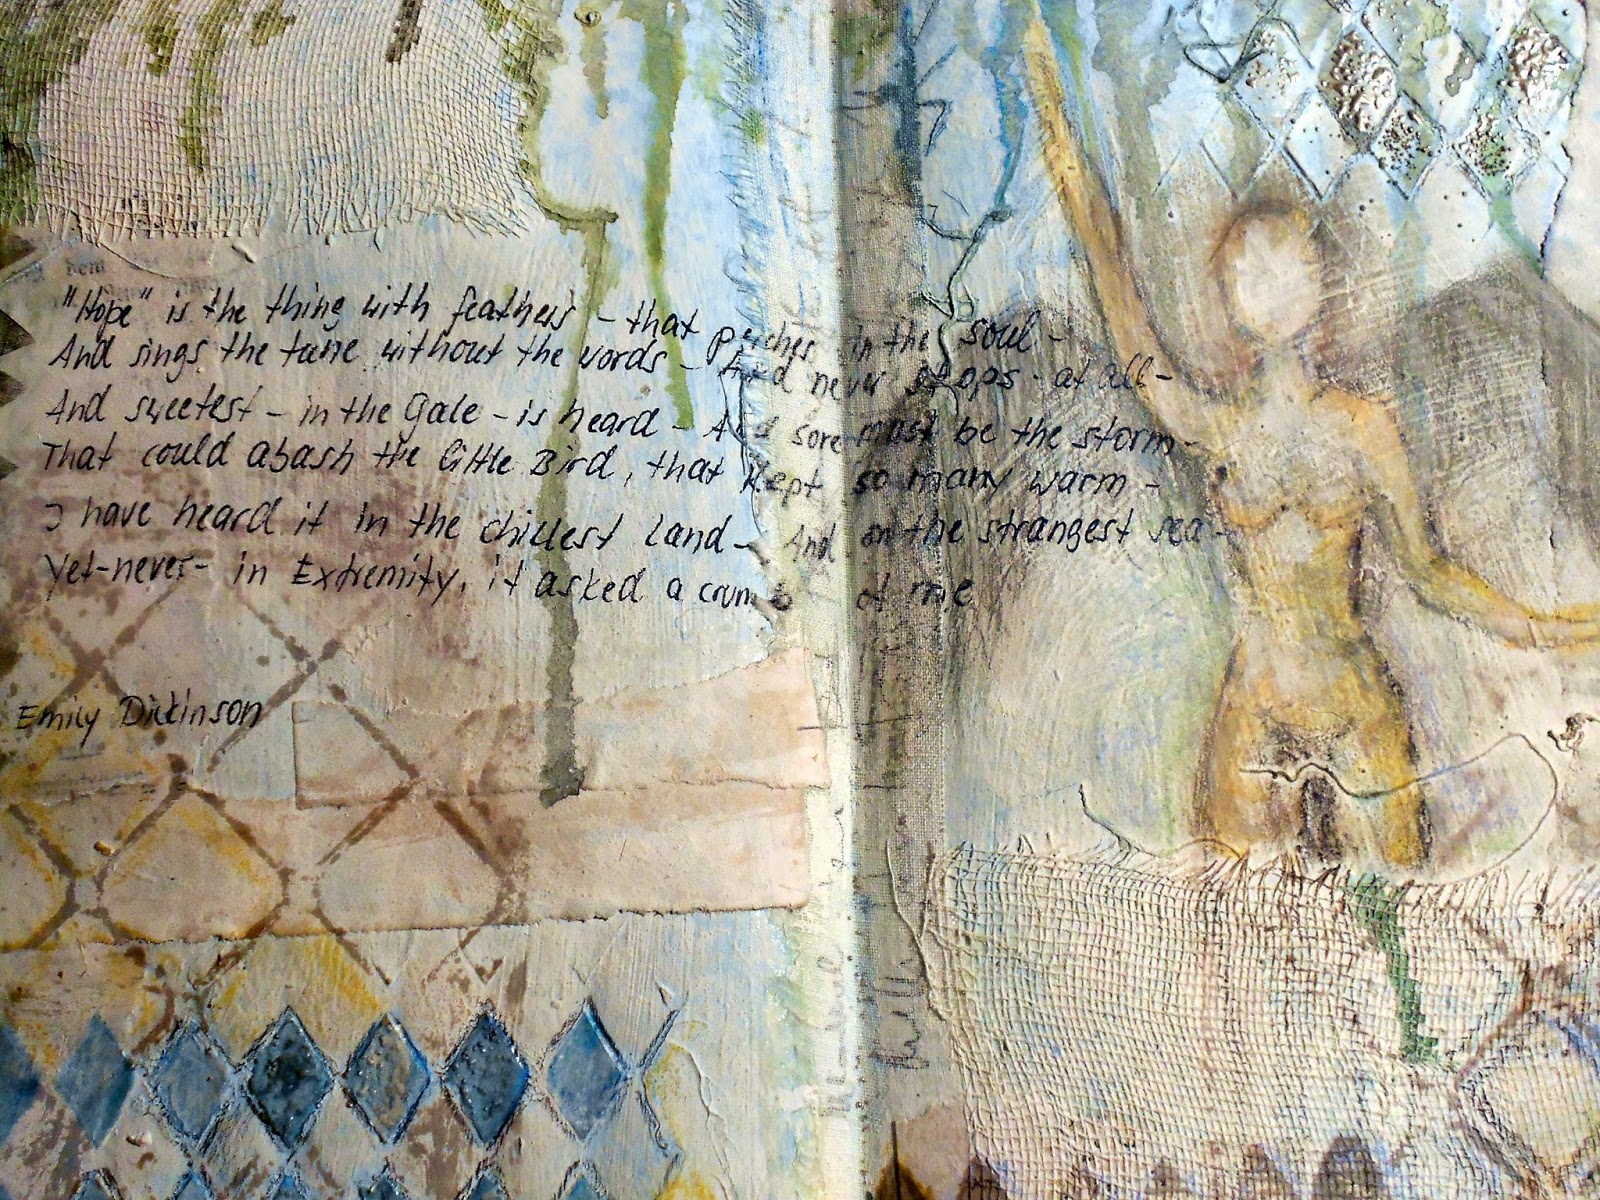 dem
"Hope" is the thing with feathers - that perches in the soul -
And sings the tune without the words - And never stops - at all -
And sweetest - in the Gale - is heard - And sore must be the storm -
That could abash the little Bird, that kept so many warm -
I have heard it in the chillest land - And on the strangest sea -
Yet - never - in Extremity, it asked a crumb of me
Emily Dickinson